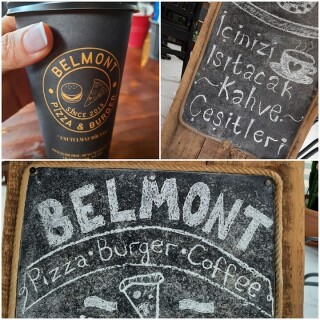 BELMONT
SINCE
PIZZA & BURGER
İçinizi
Isıtacak
~Kahve~
Çeşitleri
BELMONT
Pizza•Burger•Coffee